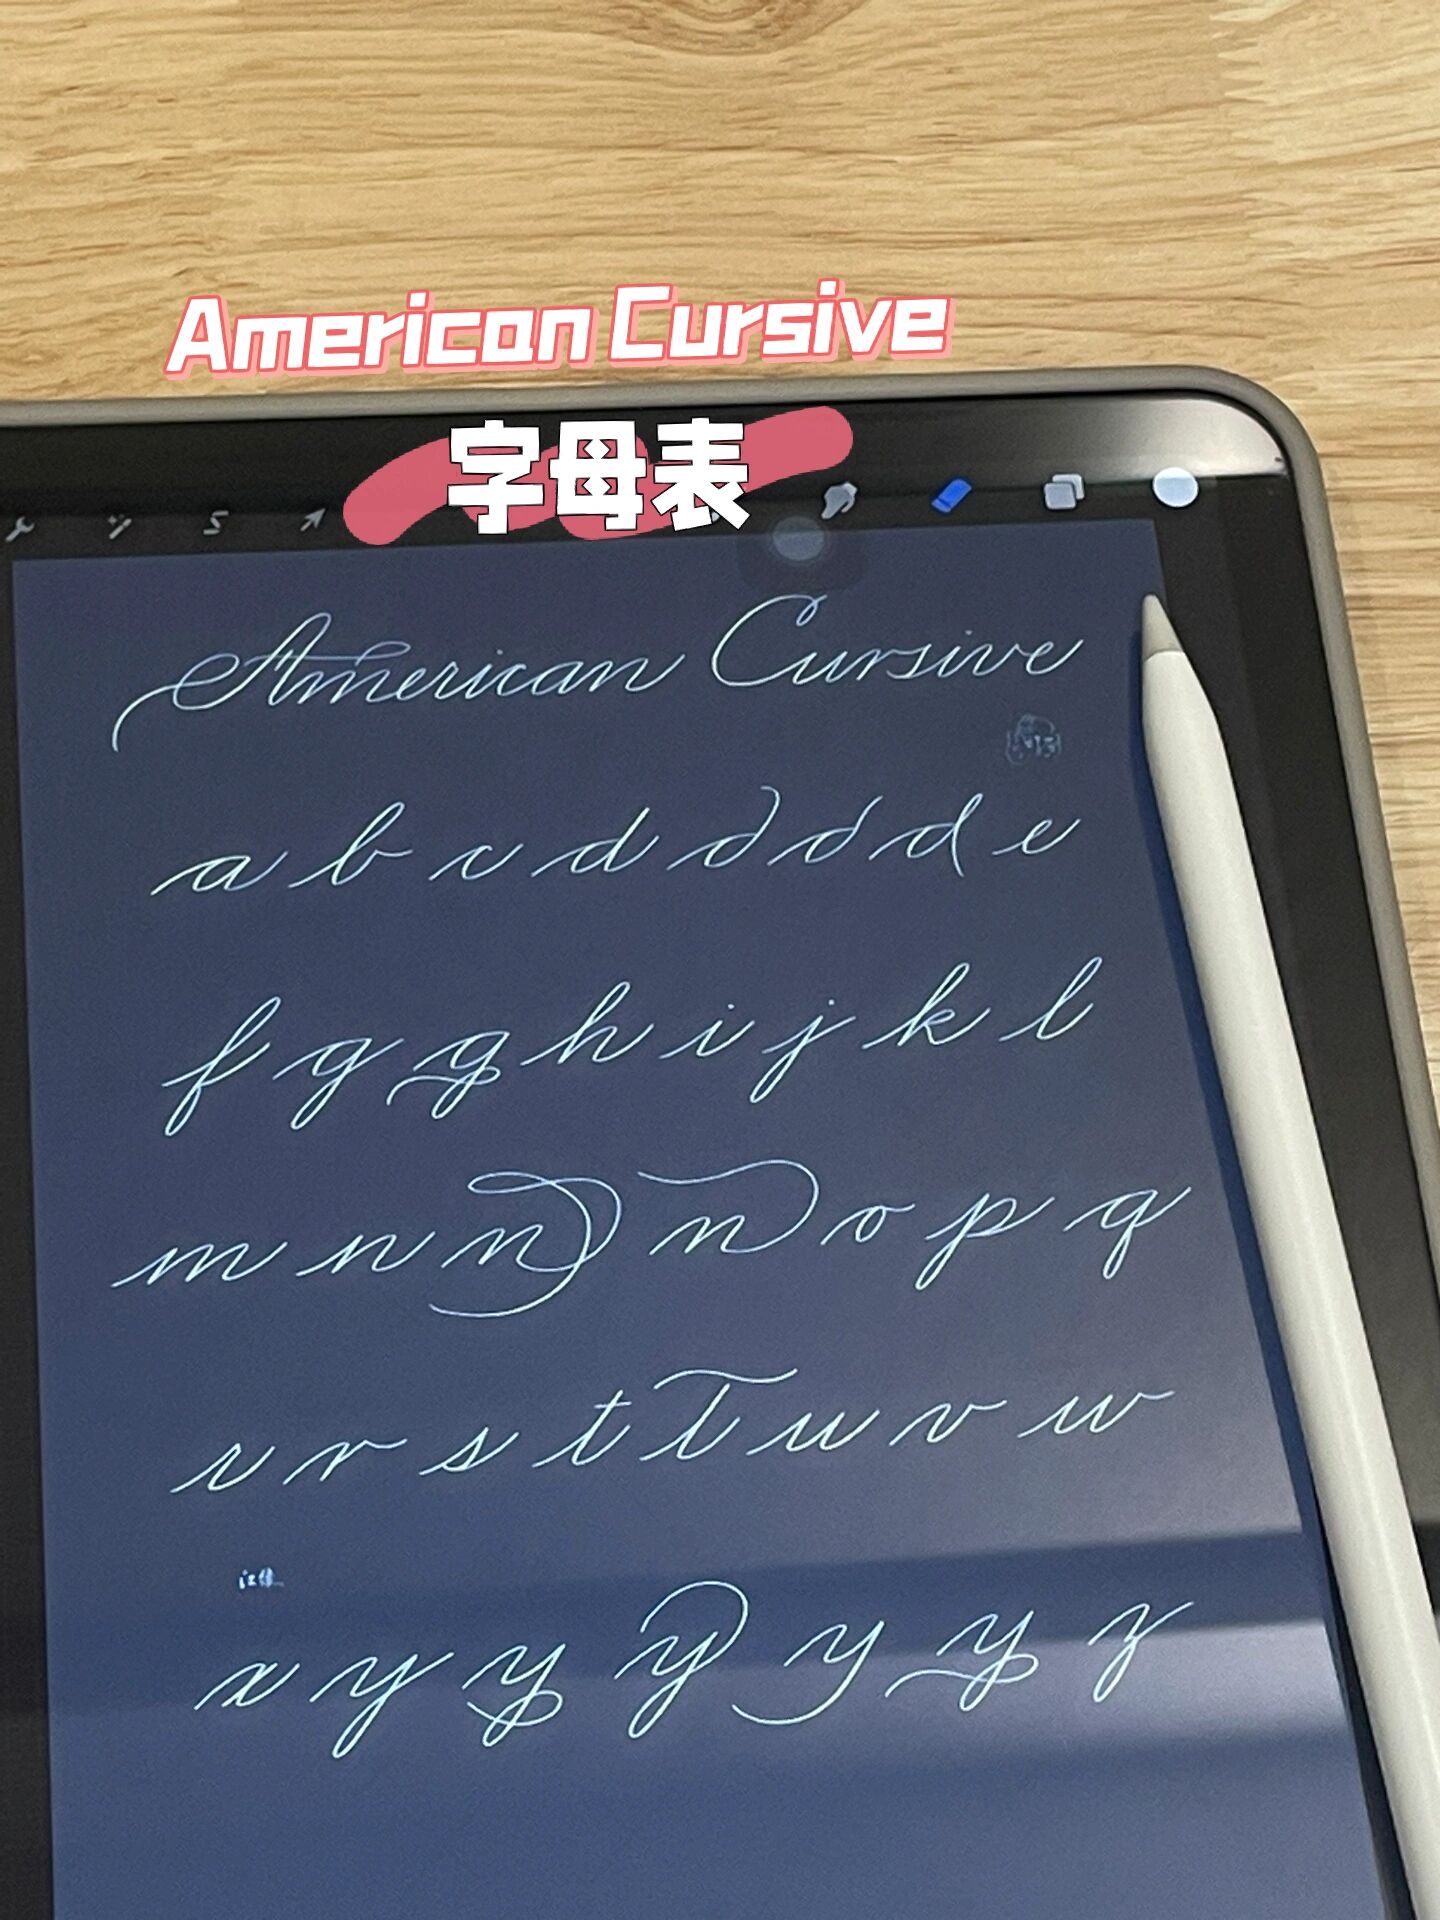 American Cursive
字母表
American Cursive
a b c d d d d e
f g g h i j k l
m n n n o p q
r r s t t u v w
x y y y y y z